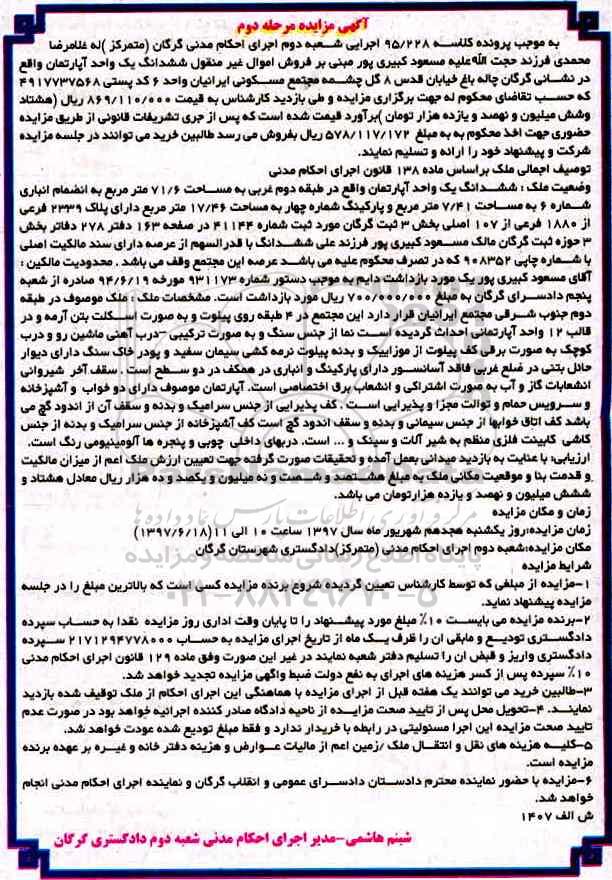 آگهی مزایده مرحله دوم
به موجب پرونده کلاسه ۹۵/۲۲۸ اجرایی شعبه دوم اجرای احکام مدنی گرگان (متمرکز )له غلامرضا
محمدی فرزند حجت الله علیه مسعود کبیری پور مبنی بر فروش اموال غیر منقول ششدانگ یک واحد آپارتمان واقع
در نشانی گرگان چاله باغ خیابان قدس ۸ گل چشمه مجتمع مسکونی ایرانیان واحد ۶ کد پستی ۴۹۱۷۷۳۷۵۶۸
که حسب تقاضای محکوم له جهت برگزاری مزایده و طی بازدید کارشناس به قیمت ۸۶۹/۱۱۰/۰۰۰ ریال (هشتاد
وشش میلیون و نهصد و یازده هزار تومان )برآورد قیمت شده است که پس از جری تشریفات قانونی از طریق مزایده
حضوری جهت اخذ محکوم به به مبلغ ۵۷۸/۱۱۷/۱۷۲ ریال بفروش می رسد طالبین خرید می توانند در جلسه مزایده
شرکت و پیشنهاد خود را ارائه و تسلیم نمایند.
توصیف اجمالی ملک براساس ماده ۱۳۸ قانون اجرای احکام مدنی
وضعیت ملک : ششدانگ یک واحد آپارتمان واقع در طبقه دوم غربی به مساحت ۷۱/۶ متر مربع به انضمام انباری
شماره ۶ به مساحت ۷/۴۱ متر مربع و پارکینگ شماره چهار به مساحت ۱۷/۴۶ متر مربع دارای پلاک ۲۳۳۹ فرعی
از ۱۸۸۰ فرعی از ۱۰۷ اصلی بخش ۳ ثبت گرگان مورد ثبت شماره ۴۱۱۴۴ در صفحه ۱۶۳ دفتر ۲۷۸ دفاتر بخش
۳ حوزه ثبت گرگان مالک مسعود کبیری پور فرزند علی ششدانگ با قدرالسهم از عرصه دارای سند مالکیت اصلی
با شماره چاپی ۹۰۸۳۵۲ که در تصرف محکوم علیه می باشد عرصه این مجتمع وقف می باشد . محدودیت مالکین :
آقای مسعود کبیری پور یک مورد بازداشت دایم به موجب دستور شماره ۹۳۱۱۷۳ مورخه ۹۴/۶/۱۹ صادره از شعبه
پنجم دادسرای گرگان به مبلغ ۷۰۰/۰۰۰/۰۰۰ ریال مورد بازداشت است. مشخصات ملک : ملک موصوف در طبقه
دوم جنوب شرقی مجتمع ایرانیان قرار دارد این مجتمع در ۴ طبقه روی پیلوت و به صورت اسکلت بتن آرمه و در
قالب ۱۲ واحد آپارتمانی احداث گردیده است نما از جنس سنگ و به صورت ترکیبی –درب آهنی ماشین رو و درب
کوچک به صورت برقی کف پیلوت از موزاییک و بدنه پیلوت نرمه کشی سیمان سفید و پودر خاک سنگ دارای دیوار
حائل بتنی در ضلع غربی فاقد آسانسور دارای پارکینگ و انباری در همکف در دو سطح است . سقف آخر شیروانی
انشعابات گاز و آب به صورت اشتراکی و انشعاب برق اختصاصی است. آپارتمان موصوف دارای دو خواب و آشپزخانه
و سرویس حمام و توالت مجزا و پذیرایی است . کف پذیرایی از جنس سرامیک و بدنه و سقف آن از اندود گچ می
باشد کف اتاق خوابها از جنس سیمانی و بدنه و سقف اندود گچ است کف آشپزخانه از جنس سرامیک و بدنه از جنس
کاشی کابینت فلزی منظم به شیر آلات و سینک و ... است. دربهای داخلی چوبی و پنجره ها آلومینیومی رنگ است.
ارزیابی: با عنایت به بازدید میدانی بعمل آمده و تحقیقات صورت گرفته جهت تعیین ارزش ملک اعم از میزان مالکیت
و قدمت بنا و موقعیت مکانی ملک به مبلغ هشتصد و شصت و نه میلیون و یکصد و ده هزار ریال معادل هشتاد و
ششش میلیون و نهصد و یازده هزارتومان می باشد.
زمان و مکان مزایده
زمان مزایده:روز یکشنبه هجدهم شهریور ماه سال ۱۳۹۷ ساعت ۱۰ الی ۱۱(۱۳۹۷/۶/۱۸)
مکان مزایده:شعبه دوم اجرای احکام مدنی (متمرکز)دادگستری شهرستان گرگان
شرایط مزایده
۱-مزایده از مبلغی که توسط کارشناس تعیین گردیده شروع برنده مزایده کسی است که بالاترین مبلغ را در جلسه
مزایده پیشنهاد نماید.
۲-برنده مزایده می بایست ۱۰٪ مبلغ مورد پیشنهاد را تا پایان وقت اداری روز مزایده نقدا به حساب سپرده
دادگستری تودیع و مابقی ان را ظرف یک ماه از تاریخ اجرای مزایده به حساب ۲۱۷۱۲۹۴۷۷۸۰۰۰ سپرده
دادگستری واریز و قبض ان را تسلیم دفتر شعبه نمایند در غیر این صورت وفق ماده ۱۲۹ قانون اجرای احکام مدنی
۱۰٪ سپرده پس از کسر هزینه های اجرای به نفع دولت ضبط واگهی مزایده تجدید خواهد شد.
۳-طالبین خرید می توانند یک هفته قبل از اجرای مزایده با هماهنگی این اجرای احکام از ملک توقیف شده بازدید
نمایند. ۴-تحویل محل پس از تایید صحت مزایده از ناحیه دادگاه صادر کننده اجرائیه خواهد بود در صورت عدم
تایید صحت مزایده این اجرا مسئولیتی در رابطه با خریدار ندارد و فقط مبلغ تودیع شده عودت خواهد شد.
۵-کلیه هزینه های نقل و انتقال ملک /زمین اعم از مالیات عوارض و هزینه دفتر خانه و غیره بر عهده برنده
مزایده است.
۶-مزایده با حضور نماینده محترم دادستان دادسرای عمومی و انقلاب گرگان و نماینده اجرای احکام مدنی انجام
خواهد شد.
ش الف ۱۴۰۷
شبنم هاشمی-مدیر اجرای احکام مدنی شعبه دوم دادگستری گرگان
پایگاه اطلاع رسانی مناقصه و مزایده
۰۲۱-۸۸۳۴۹۶۷۰-۵